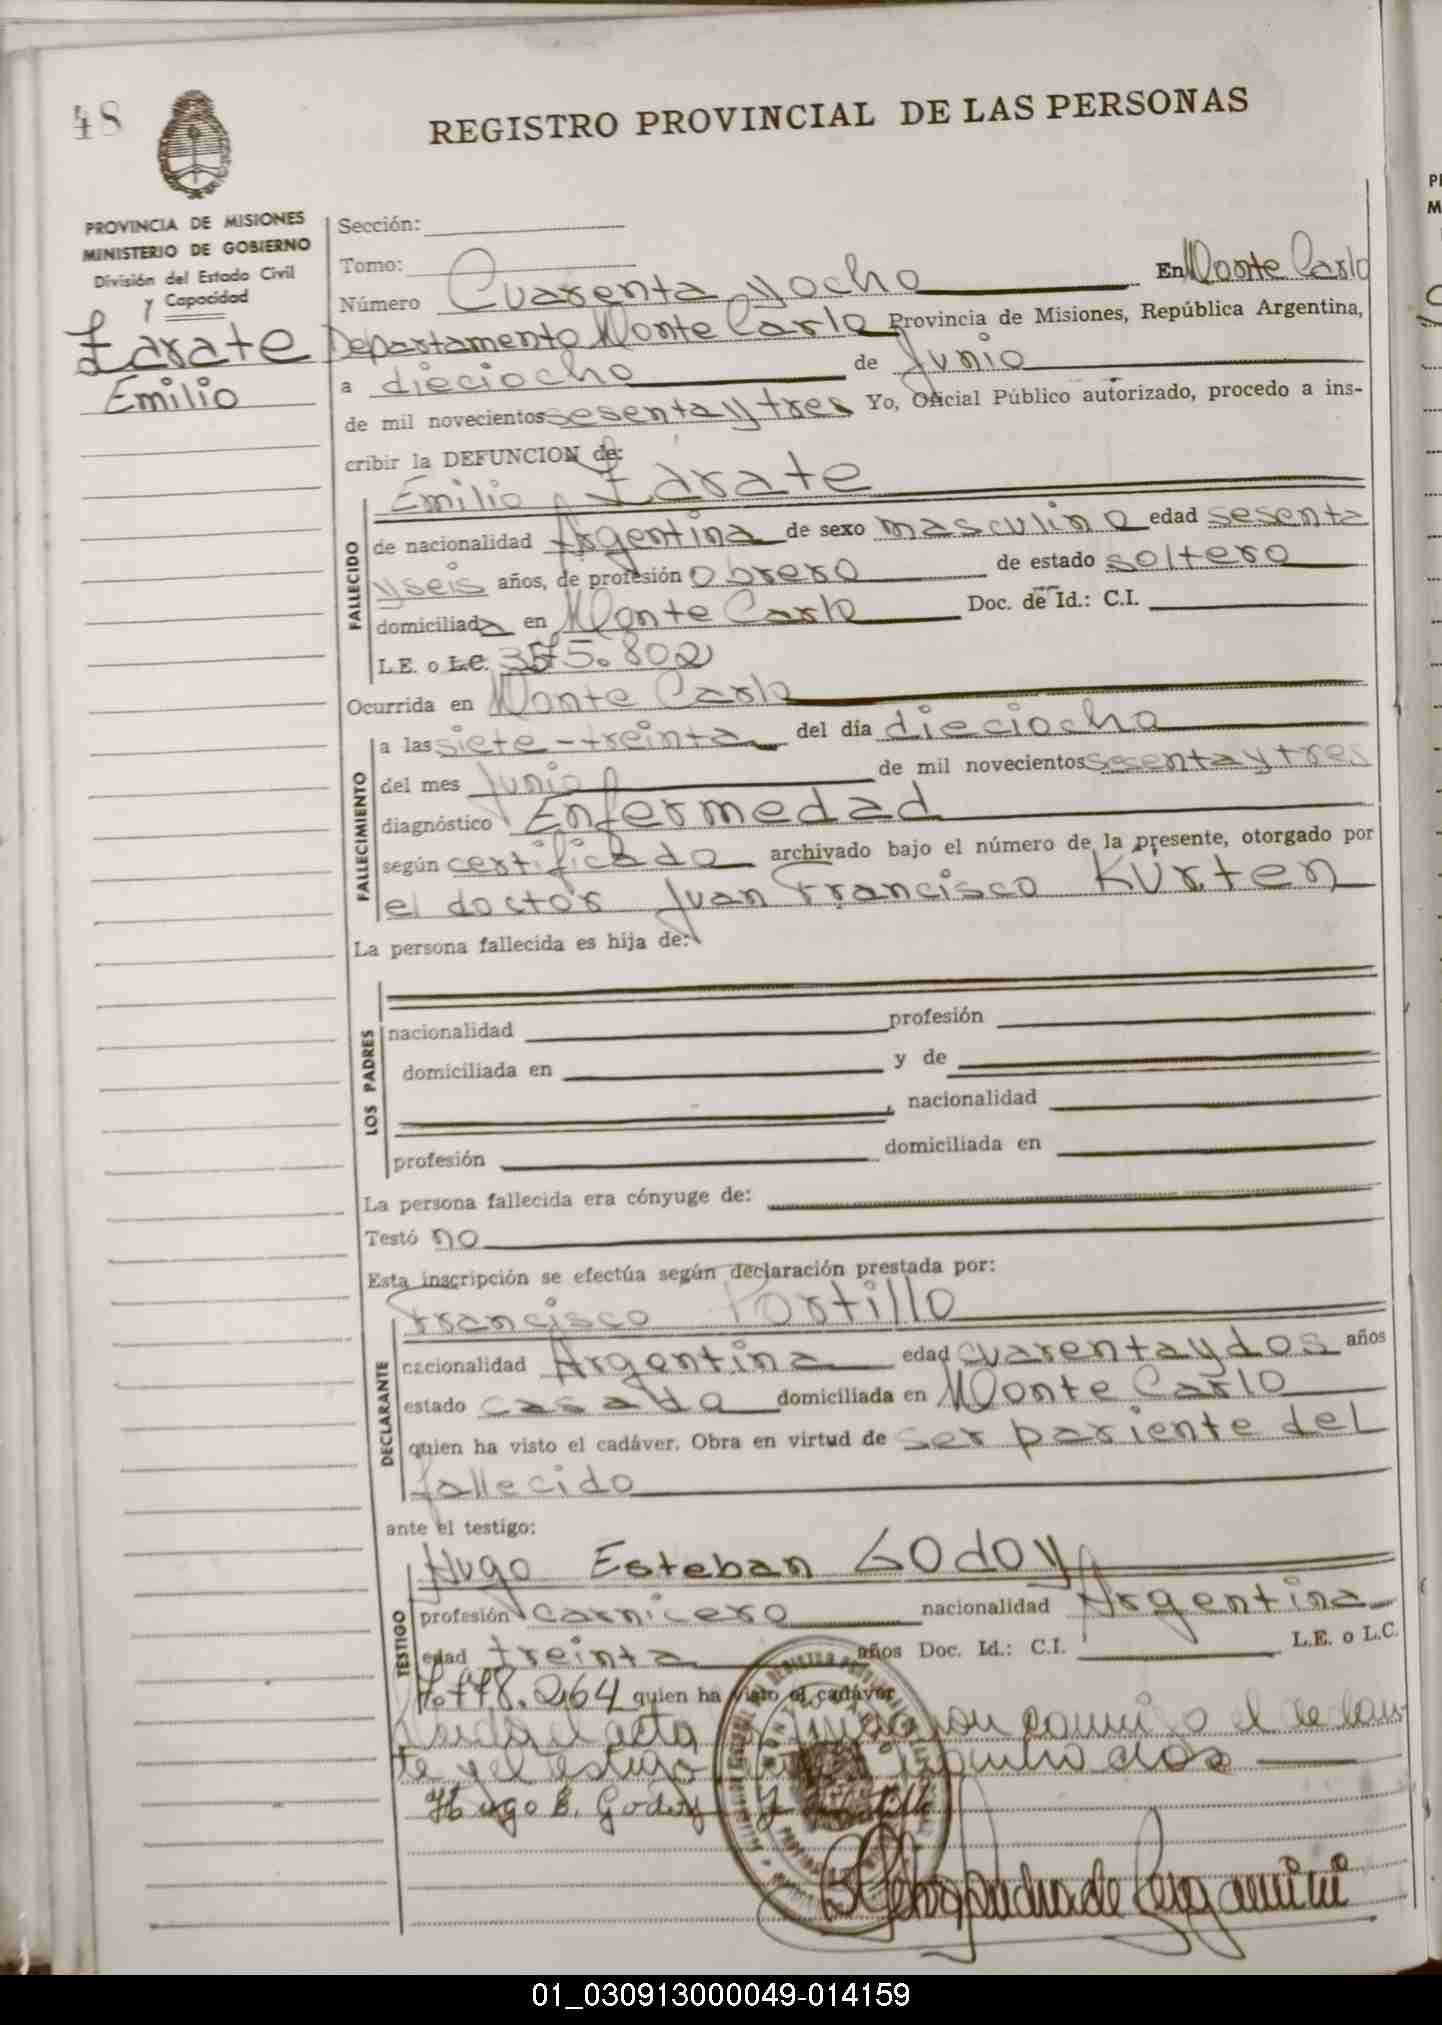 48
REGISTRO PROVINCIAL DE LAS PERSONAS
PROVINCIA DE MISIONES
MINISTERIO DE GOBIERNO
División del Estado Civil
y Capacidad
Zarate
Emilio
Sección:
Tomo:
Número Cuarenta y ocho En Monte Carlo
Departamento Monte Carlo Provincia de Misiones, República Argentina,
a dieciocho de Junio
de mil novecientos sesenta y tres Yo, Oficial Público autorizado, procedo a ins-
cribir la DEFUNCION de:
Emilio Zarate
FALLECIDO
de nacionalidad Argentina de sexo masculino edad sesenta
y seis años, de profesión obrero de estado soltero
domiciliada en Monte Carlo Doc. de Id.: C.I.
L.E. o L.C. .802
Ocurrida en Monte Carlo
FALLECIMIENTO
a las siete-treinta del día dieciocho
del mes Junio de mil novecientos sesenta y tres
diagnóstico Enfermedad
según certificado archivado bajo el número de la presente, otorgado por
el doctor Juan Francisco Kürten
La persona fallecida es hija de:
LOS PADRES
nacionalidad profesión
domiciliada en y de
, nacionalidad
profesión domiciliada en
La persona fallecida era cónyuge de:
Testó no
Esta inscripción se efectúa según declaración prestada por:
Francisco Portillo
DECLARANTE
nacionalidad Argentina edad cuarenta y dos años
estado casado domiciliada en Monte Carlo
quien ha visto el cadáver. Obra en virtud de ser pariente del
fallecido
ante el testigo:
Hugo Esteban Godoy
TESTIGO
profesión carnicero nacionalidad Argentina
edad treinta años Doc. Id.: C.I. L.E. o L.C.
.264 quien ha visto el cadáver
Leida el acta el declaran-
te y el testigo
Hugo E. Godoy
01_030913000049-014159